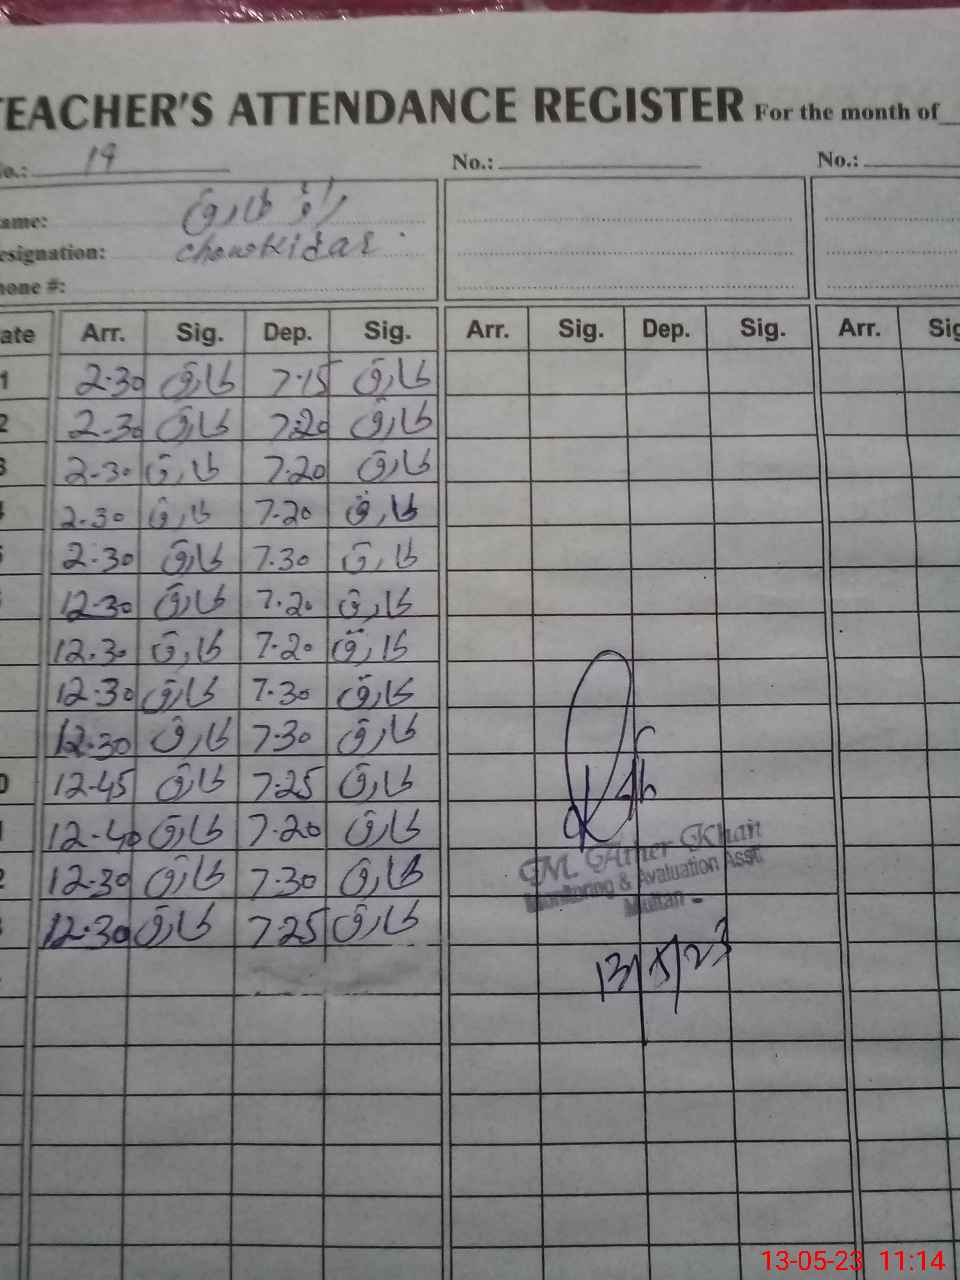 TEACHER'S ATTENDANCE REGISTER For the month of
No.: 19 No.: No.:
Name: راؤ طارق
Designation: chowkidar
Phone #:
Date Arr. Sig. Dep. Sig. Arr. Sig. Dep. Sig. Arr. Sig
1 2.30 طارق 7.15 طارق
2 2.30 طارق 7.20 طارق
3 2.30 طارق 7.20 طارق
4 2.30 طارق 7.20 طارق
5 2.30 طارق 7.30 طارق
12.30 طارق 7.20 طارق
12.30 طارق 7.20 طارق
12.30 طارق 7.30 طارق
12.30 طارق 7.30 طارق
0 12.45 طارق 7.25 طارق
1 12.40 طارق 7.20 طارق
2 12.30 طارق 7.30 طارق
3 12.30 طارق 7.25 طارق
M. Ather Khan
Monitoring & Evaluation Asst
Multan
13/5/23
13-05-23 11:14